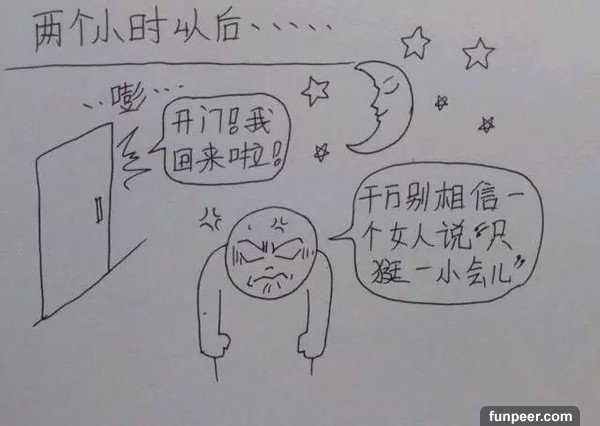 两个小时以后、、、、、
..嘭...
开门!我
回来啦!
千万别相信一
个女人说“只
逛一小会儿”
funpeer.com